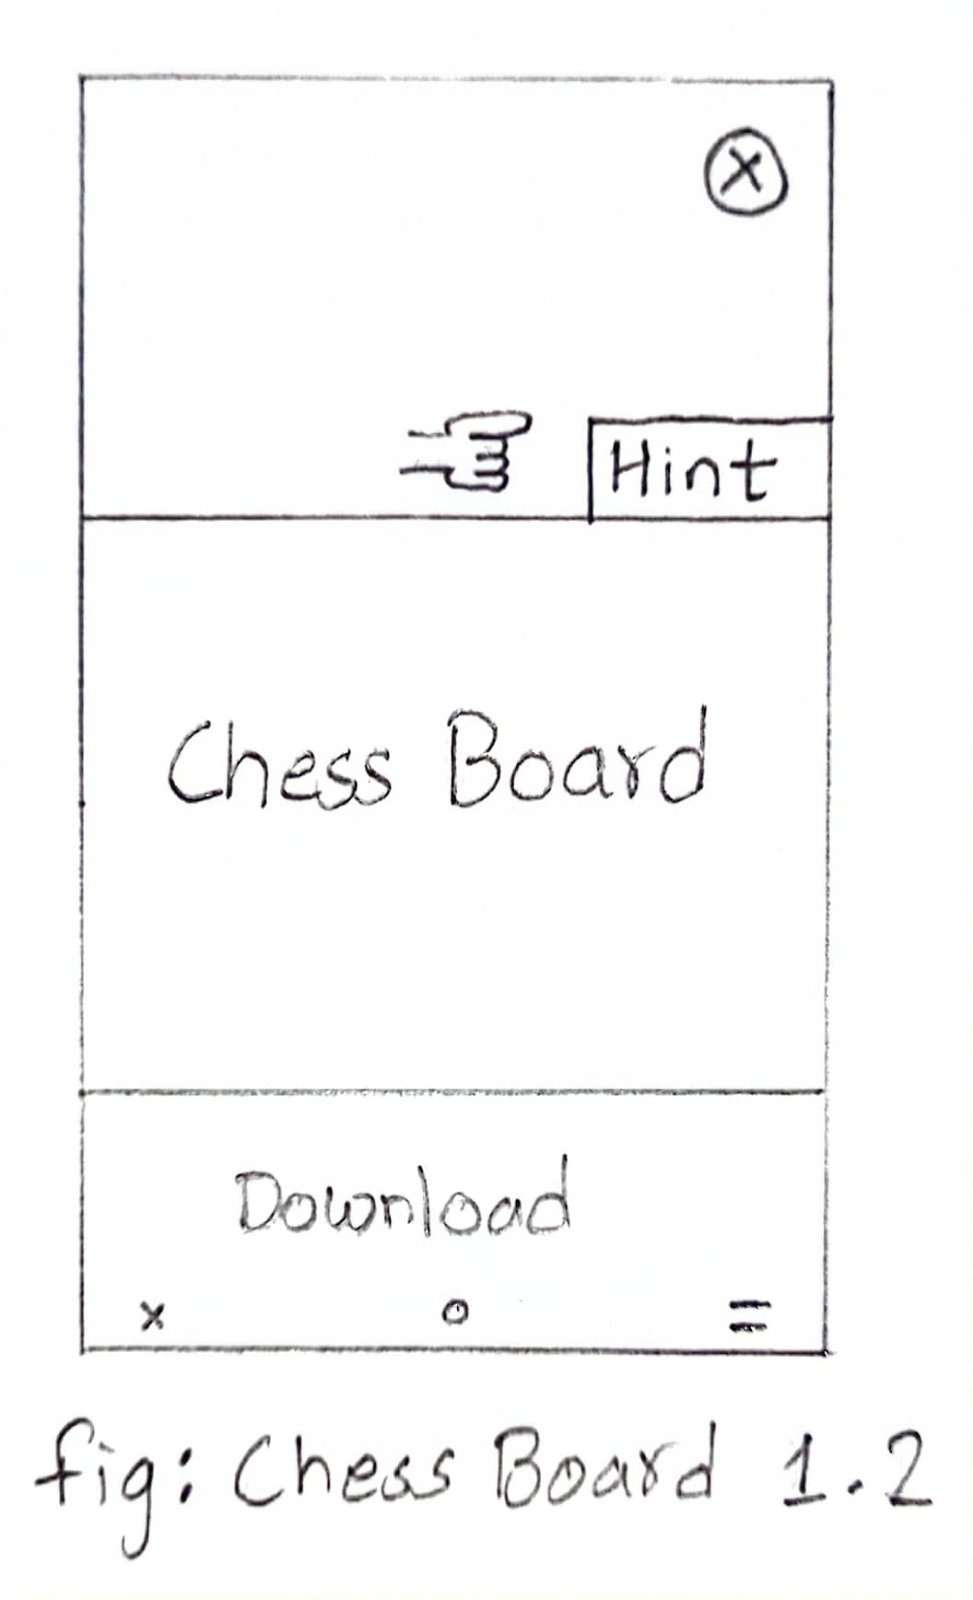 X
Hint
Chess Board
Download
x o =
fig: Chess Board 1.2